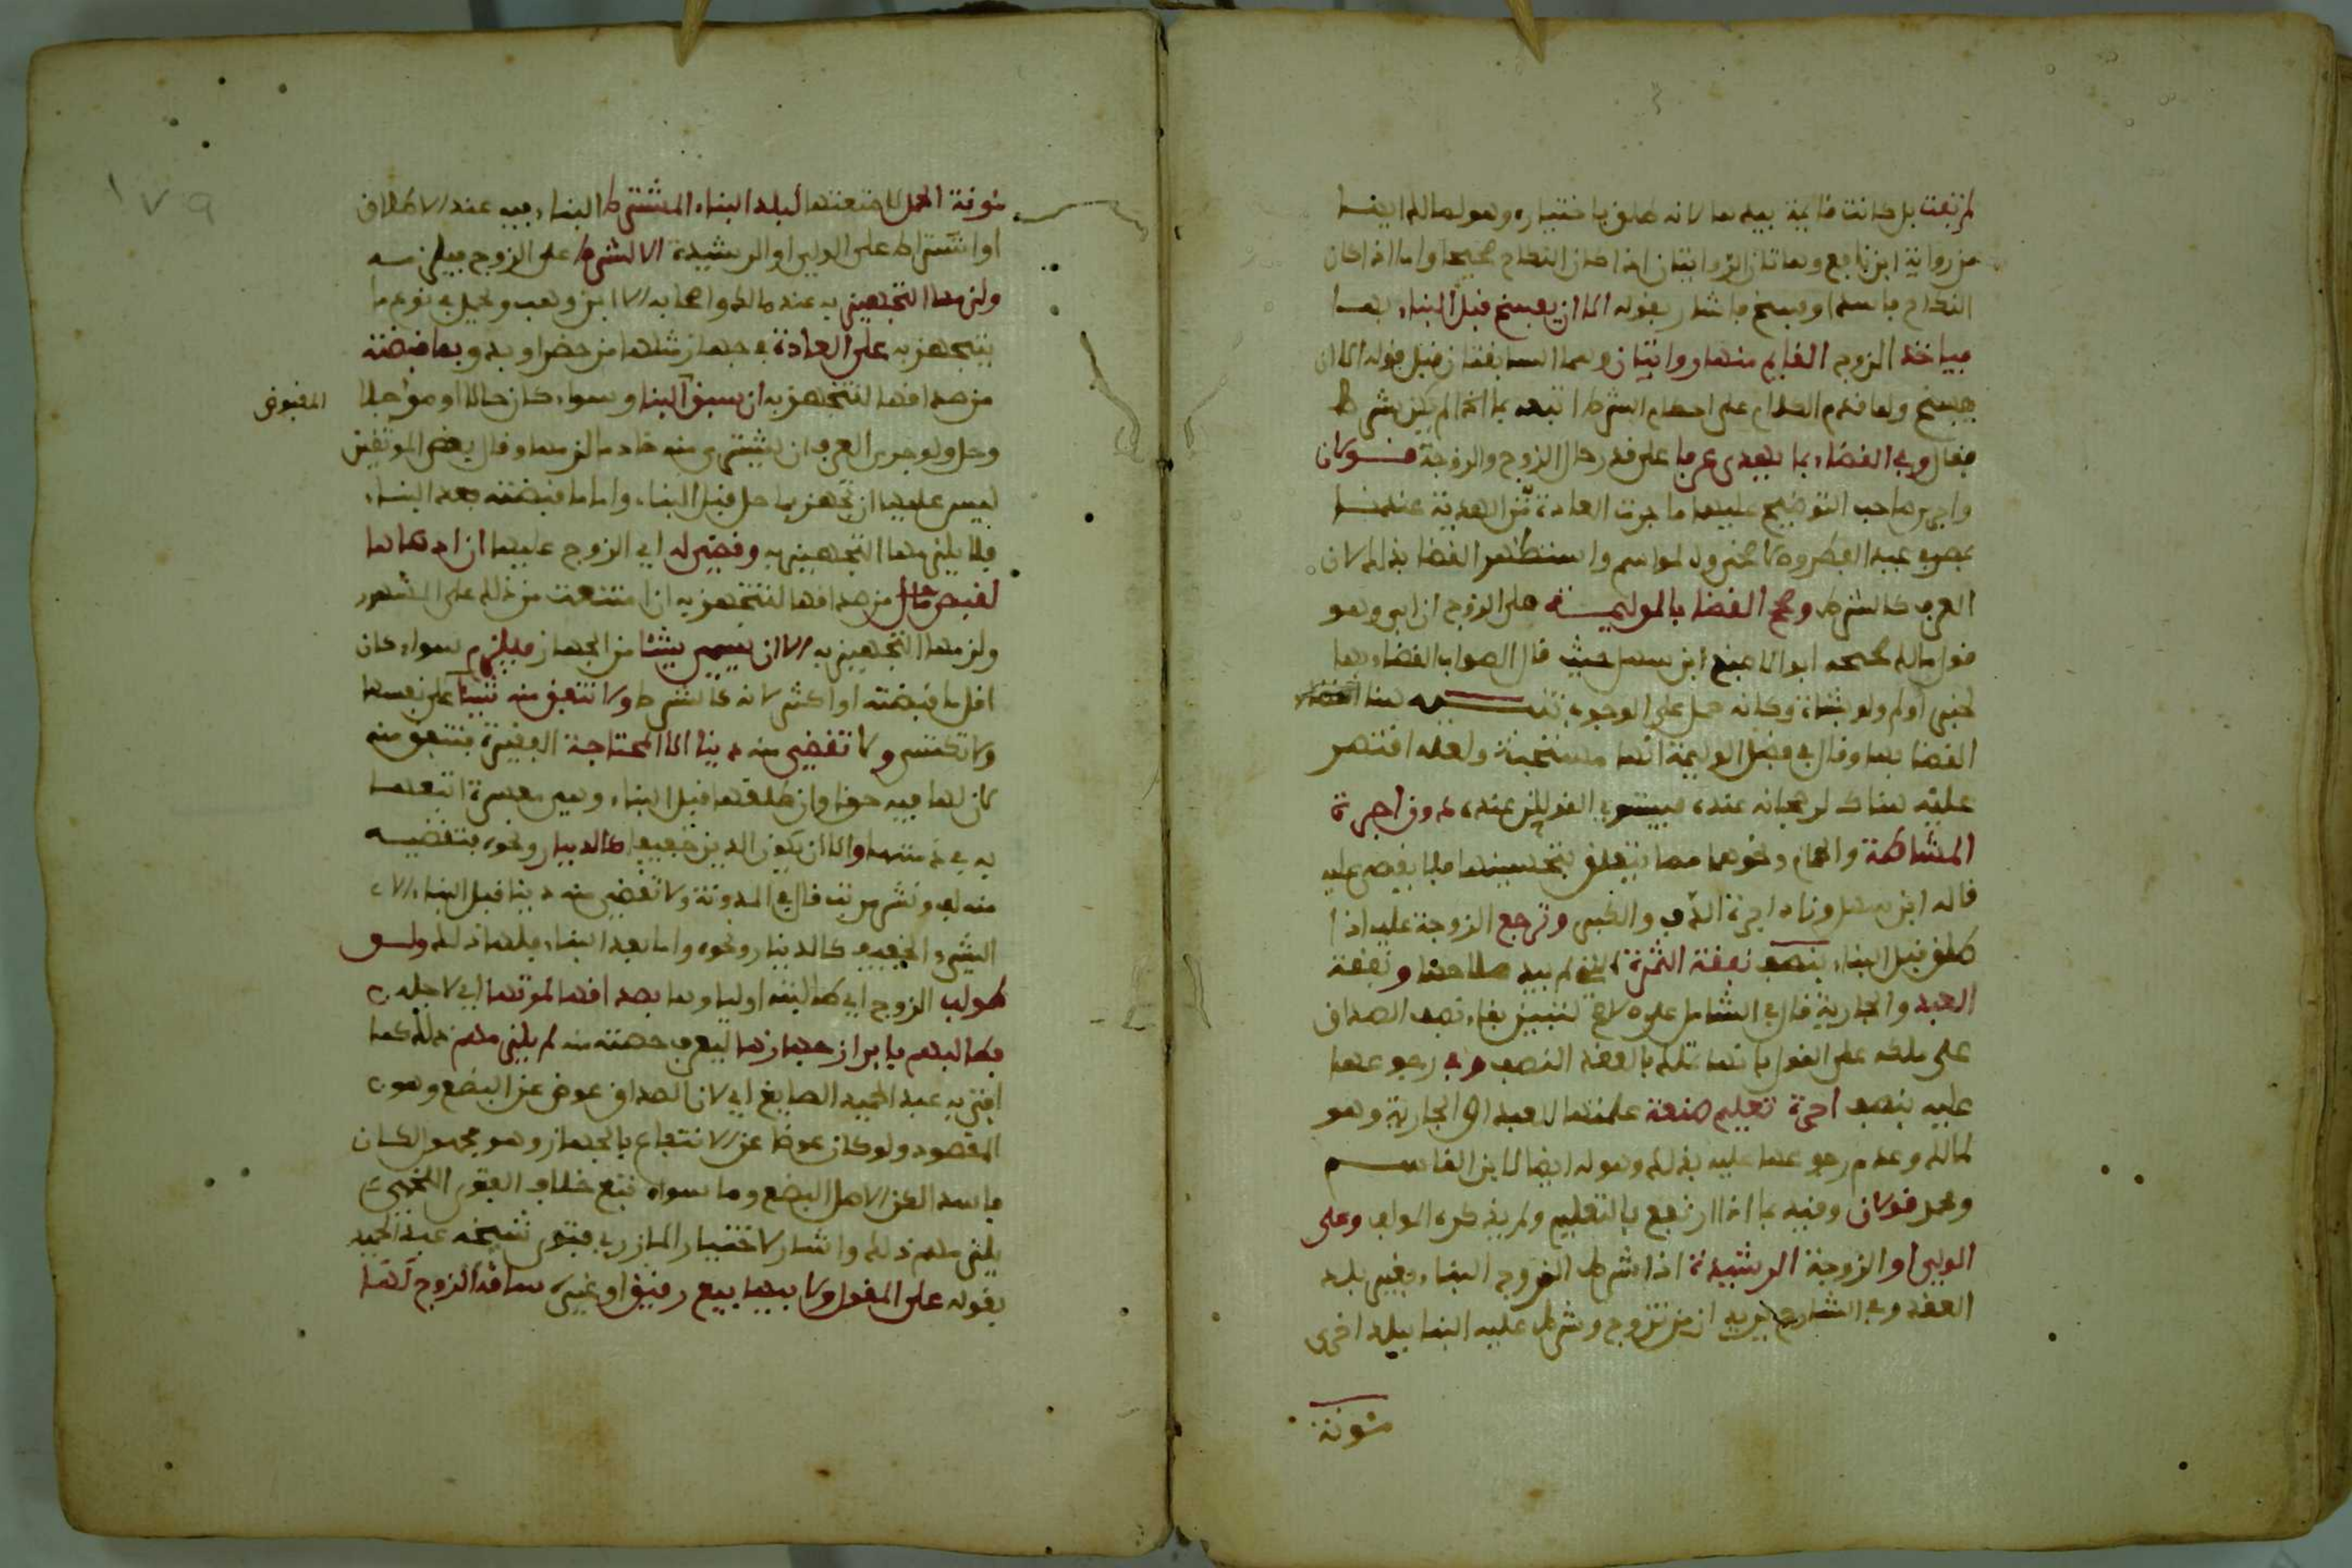 لم تفت بل كانت قائمة بيدها لانه طلق باختياره وهو لمالك ايضا
من رواية ابن نافع وهاتان الروايتان اذا كان النكاح صحيحا واما اذا كان
النكاح فاسدا وفسخ فاشار بقوله الا ان يفسخ قبل البناء بها
فياخذ الزوج القايم منها روايتان وهما السابقتان قبل قوله الا ان
يفسخ ولما قدم الكلام على احكام الشرط اتبعه بما اذا لم يكن شرط
فقال وفي القضاء بما يهدى عرفا على قدر حال الزوج والزوجة قولان
واجرى صاحب التوضيح عليهما ما جرت العادة من الهدية عندنا
بمصر في عيد الفطر وكالخروف لموسم واستظهر القضا بذلك لان
العرف كالشرط وصحح القضا بالوليمة على الزوج ان ابى وهو
قول مالك صححه ابو الاصبغ ابن سهل حيث قال الصواب القضاء بها
لخبر اولم ولو بشاة وكانه حمل على الوجوب تنبيه هنا
القضا بها وقال في فصل الوليمة انها مستحبة ولعله اقتصر
عليه هناك لرجحانه عنده فيستوي القولان عنده دون اجرة
الماشطة والحمام ونحوهما مما يتعلق بتحسينها فلا يقضى عليه
قاله ابن سهل وزاد اجرة الدف والكبر وترجع الزوجة عليه اذا
طلق قبل البناء بنصف نفقة الثمرة التي لم يبد صلاحها ونفقة
العبد والجارية قال في الشامل على الاصح لتبين بقاء نصف الصداق
على ملكه على القول بانها تملك بالعقد النصف وفي رجوعها
عليه بنصف اجرة تعليم صنعة علمتها العبد او الجارية وهو
لمالك وعدم رجوعها عليه بذلك وهو له ايضا لابن القاسم
ومحمد قولان وقيد بما اذا ارتفع بالتعليم ولم يذكره المولف وعلى
الولي او الزوجة الرشيدة اذا شرط الزوج البناء بغير بلد
العقد وفي الشارح يريد ان من تزوج وشرط عليه البنا ببلد اخرى
مئونة
مئونة الحمل لامتعتها لبلد البناء المشترط البناء فيه عند الاطلاق
او اشتراط على الولي او الرشيدة الا لشرط على الزوج فيلزمه
ولزمها التجهيز به عند مالك واصحابه الا ابن وهب ومحل لزوم ما
تتجهز به على العادة في جهاز مثلها من حضر او بدو بما قبضته
من صداقها لتتجهز به ان سبق البنا وسواء كان حالا او مؤجلا
المقبوض
وحل ولو جرى العرف ان يشترى منه خادما لزمها وقال بعض الموثقين
ليس عليها ان تجهز بما حل قبل البناء واما ما قبضته بعد البناء
فلا يلزمها التجهيز به وقضي له اي الزوج عليها ان دعاها
لقبض ما حل من صداقها لتتجهز به ان امتنعت من ذلك على المشهور
ولزمها التجهيز به الا ان يسمى شيئا من الجهاز فيلزم سواء كان
اقل ما قبضته او اكثر لانه كالشرط ولا تنفق منه شيئا على نفسها
ولا تكتسي ولا تقضي منه دينا الا المحتاجة الفقيرة فتنفق منه
لان لها فيه حقا وان طلقها قبل البناء وهي معسرة اتبعها
به في ذمتها والا ان يكون الدين خفيفا كالدينار ونحوه فتقضيه
منه قال في المدونة ولا تقضي منه دينا قبل البناء الا
الشيء الخفيف كالدينار ونحوه واما بعد البناء فلها ذلك ولو
طولب الزوج اي طالبه اولياؤها بصداقها لموتها اي لاجله
فطالبهم بابراز جهازها ليعرف حصته منه لم يلزمهم ذلك كما
افتى به عبد الحميد الصايغ اي لان الصداق عوض عن البضع وهو
المقصود ولو كان عوضا عن الانتفاع بالجهاز وهو مجهول لكان
فاسدا لكن الاصل البضع وما سواه تبع خلاف القول اللخمي
يلزمهم ذلك واشار لاختيار المازري فتوى شيخه عبد الحميد
بقوله على المقول ولابيها بيع رقيق او غيره ساقه الزوج لها